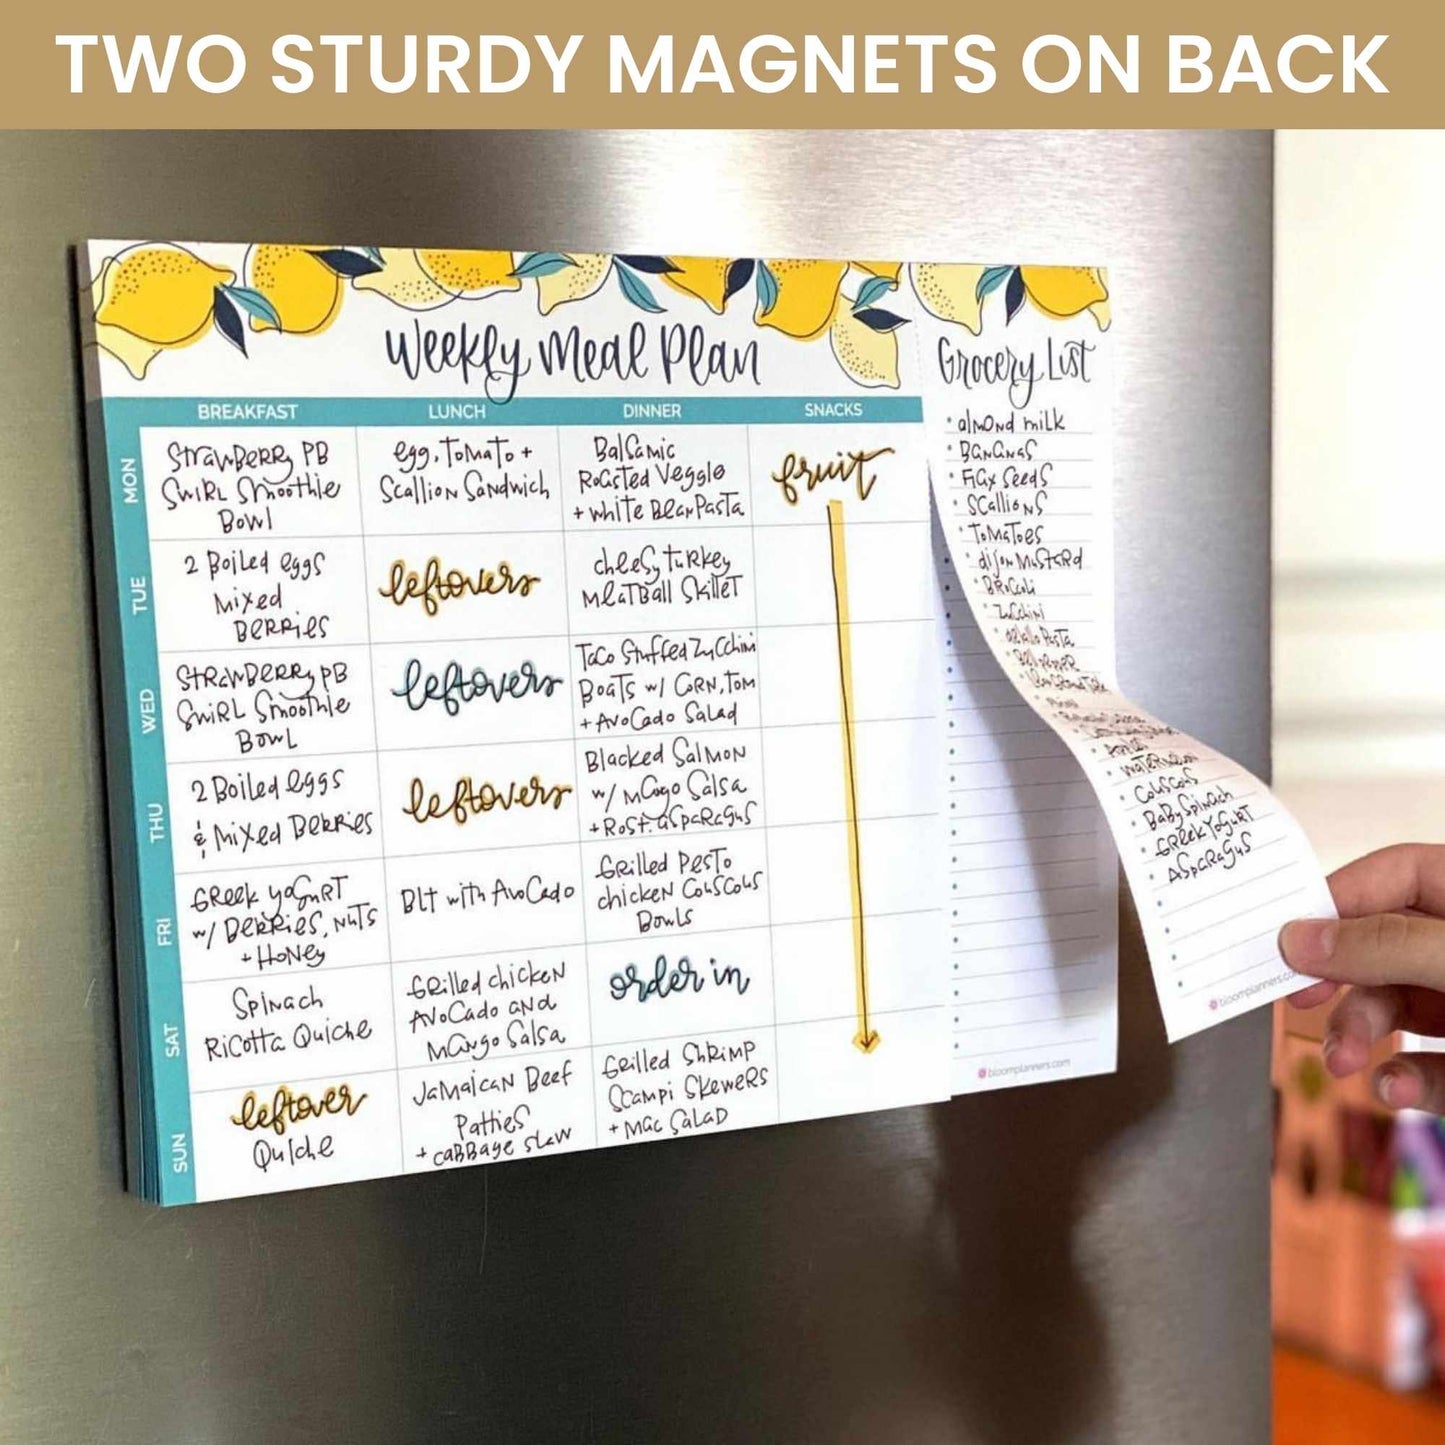 TWO STURDY MAGNETS ON BACK
Weekly Meal Plan
BREAKFAST LUNCH DINNER SNACKS
MON
Strawberry PB
Swirl Smoothie
Bowl
egg, Tomato +
Scallion Sandwich
Balsamic
Roasted Veggie
+ white Bean Pasta
fruit
TUE
2 Boiled eggs
Mixed
Berries
leftovers
cheesy turkey
Meatball Skillet
WED
Strawberry PB
Swirl Smoothie
Bowl
leftovers
Taco Stuffed Zucchini
Boats w/ Corn, Tom
+ Avocado Salad
THU
2 Boiled eggs
& Mixed Berries
leftovers
Blacked Salmon
w/ Mango Salsa
+ Rost. asparagus
FRI
Greek yogurt
w/ Berries, Nuts
+ Honey
BLT with Avocado
Grilled Pesto
chicken Couscous
Bowls
SAT
Spinach
Ricotta Quiche
Grilled chicken
Avocado and
Mango Salsa
order in
SUN
leftover
Quiche
Jamaican Beef
Patties
+ cabbage slaw
Grilled Shrimp
Scampi Skewers
+ Mac Salad
Grocery List
• almond milk
• Bananas
• Flax Seeds
• Scallions
• Tomatoes
• dijon Mustard
• Broccoli
• Zucchini
Pasta
• Watermelon
• Couscous
• Baby Spinach
• Greek Yogurt
• Asparagus
bloomplanners.co
bloomplanners.com